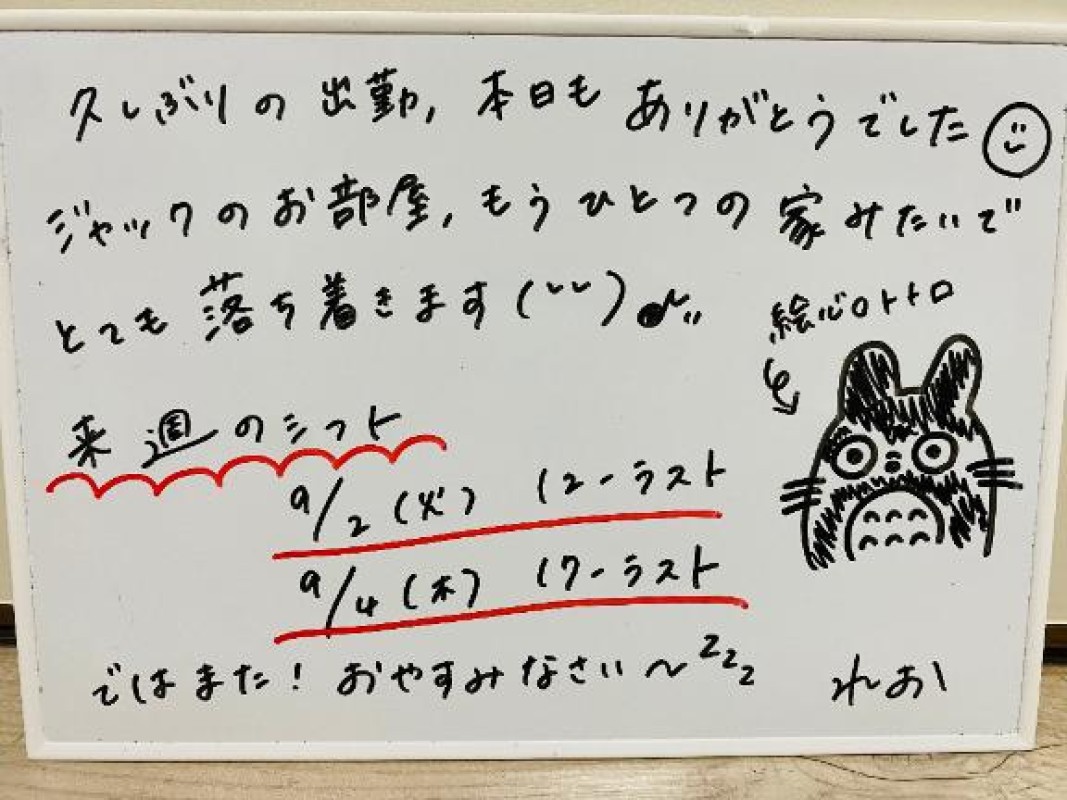 久しぶりの出勤, 本日もありがとうでした
ジャックのお部屋, もうひとつの家みたいで
とても落ち着きます(˘˘)♪"
絵心0トトロ
来週のシフト
9/2(火) 12-ラスト
9/4(木) 17-ラスト
ではまた! おやすみなさい〜zzz
れあ